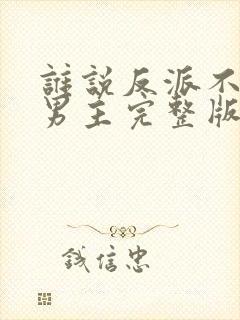 誰說反派不
男主完整版
钱信忠